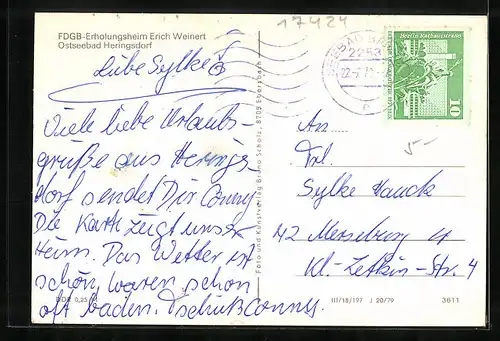 17424
FDGB-Erholungsheim Erich Weinert
Ostseebad Heringsdorf
Liebe Sylke!
Viele liebe Urlaubs-
grüße aus Herings-
dorf sendet Dir Conny
Die Karte zeigt unser
Heim. Das Wetter ist
schön, waren schon
oft baden. Tschüß
DDR 0,25 M
Foto und Kunstverlag Bruno Scholz, 8705 Ebersbach
SEEBAD
2253
22-7
Berlin Rathausstraße
10
5-
An
Frl.
Sylke Hauck
42 Merseburg
Kl.-Zetkin-Str. 4
III/18/197 J 20/79 3611